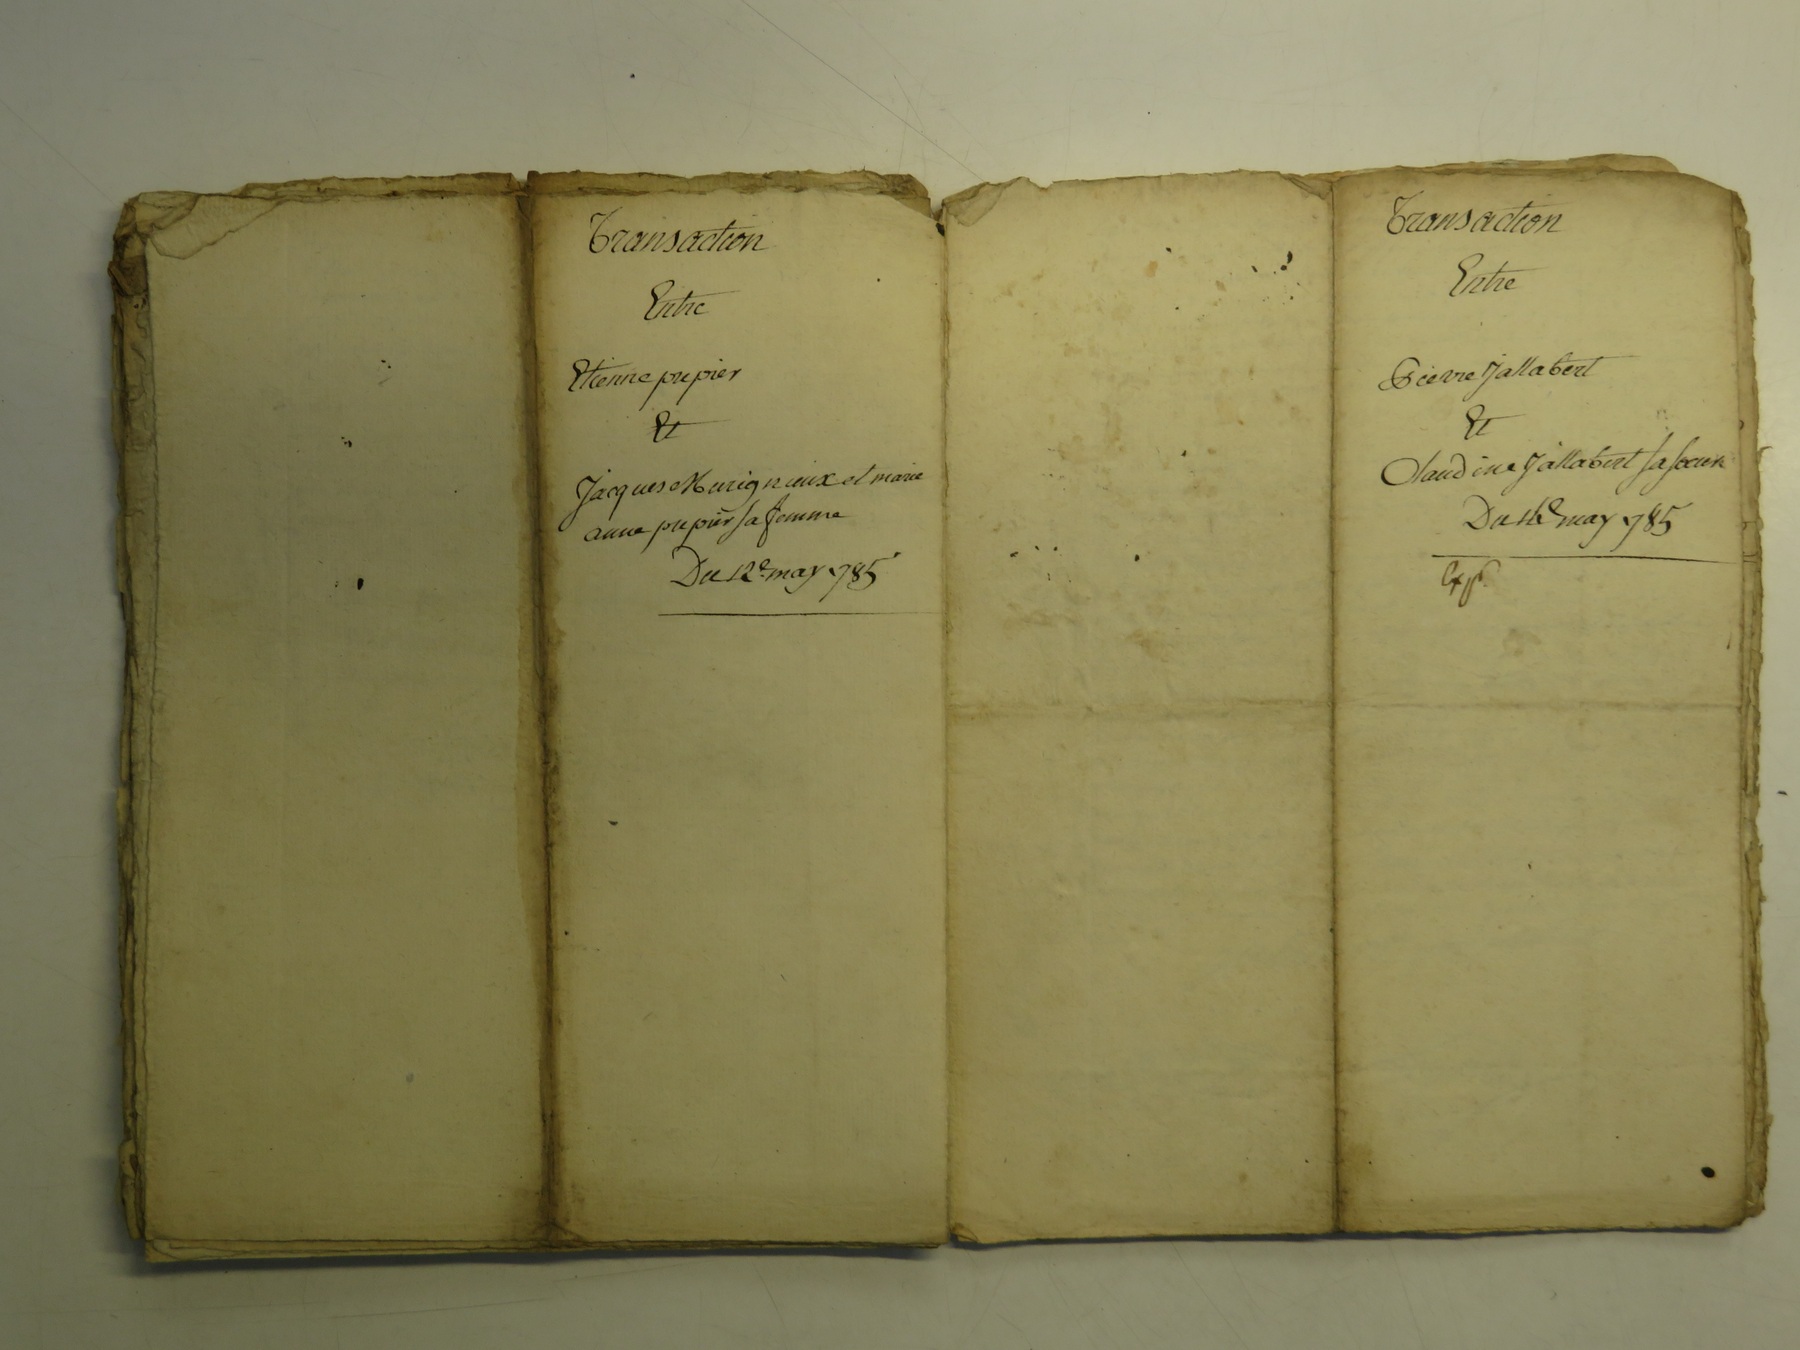 Transaction
Entre
Etienne pupier
Et
Jacques Murigneux et marie
anne pupier sa femme
Du 12e may 785
Transaction
Entre
Pierre Jallabert
Et
Claudine Jallabert sa soeur
Du 16e may 785
Exp.